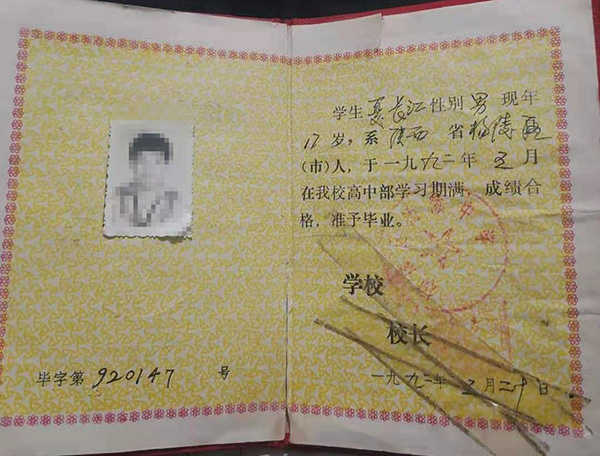 毕字第920147号
学生夏长江性别男现年
17岁，系陕西省杨陵区
(市)人，于一九九二年五月
在我校高中部学习期满，成绩合
格，准予毕业。
学校
校长
一九九二年五月二十日